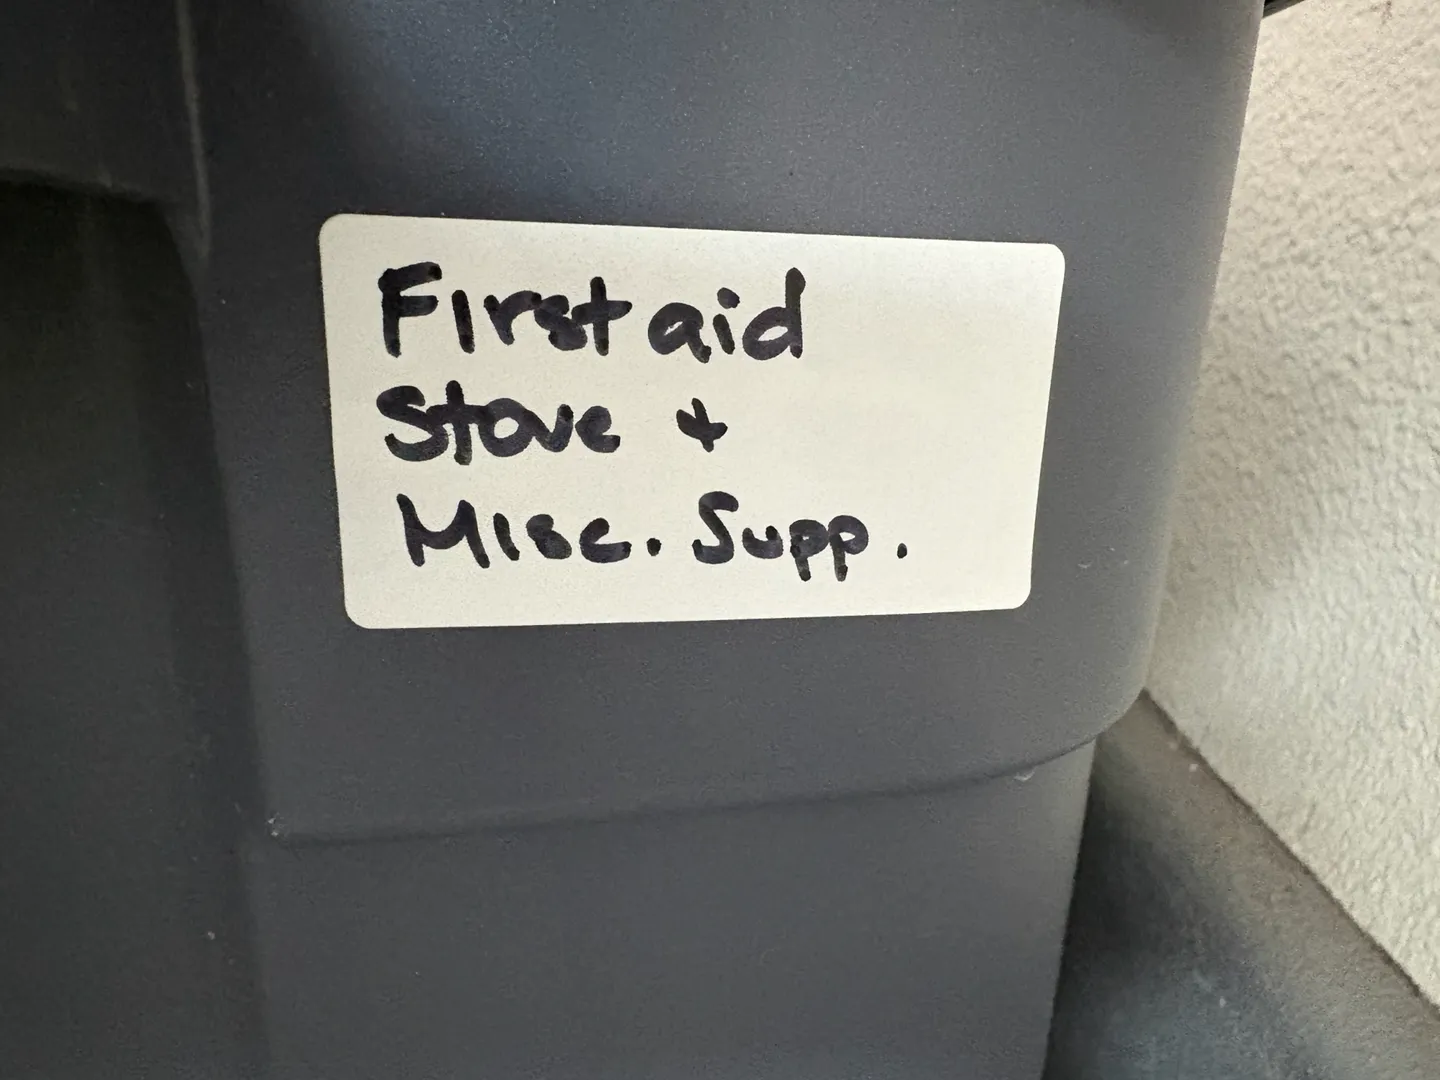 First aid
Stove +
Misc. Supp.